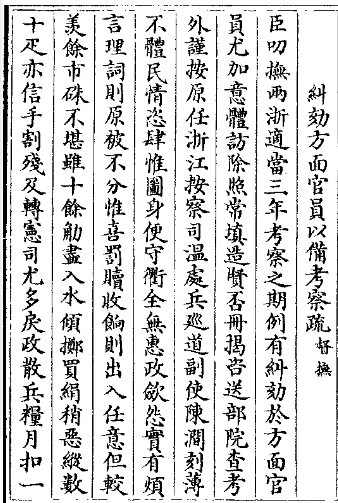 糾劾方面官員以備考察疏 督撫
臣叨撫兩浙適當三年考察之期例有糾劾於方面官
員尤加意體訪除照常填造賢否冊揭咨送部院查考
外謹按原任浙江按察司溫處兵廵道副使陳澗刻薄
不體民情恣肆惟圖身便守衢全無惠政歛怨實有煩
言理詞則原被不分惟喜罰贖收餉則出入任意但較
羡餘市硃不堪雖十餘觔盡入水傾擲買絹稍惡縱數
十疋亦信手割殘及轉憲司尤多戾政散兵糧月扣一